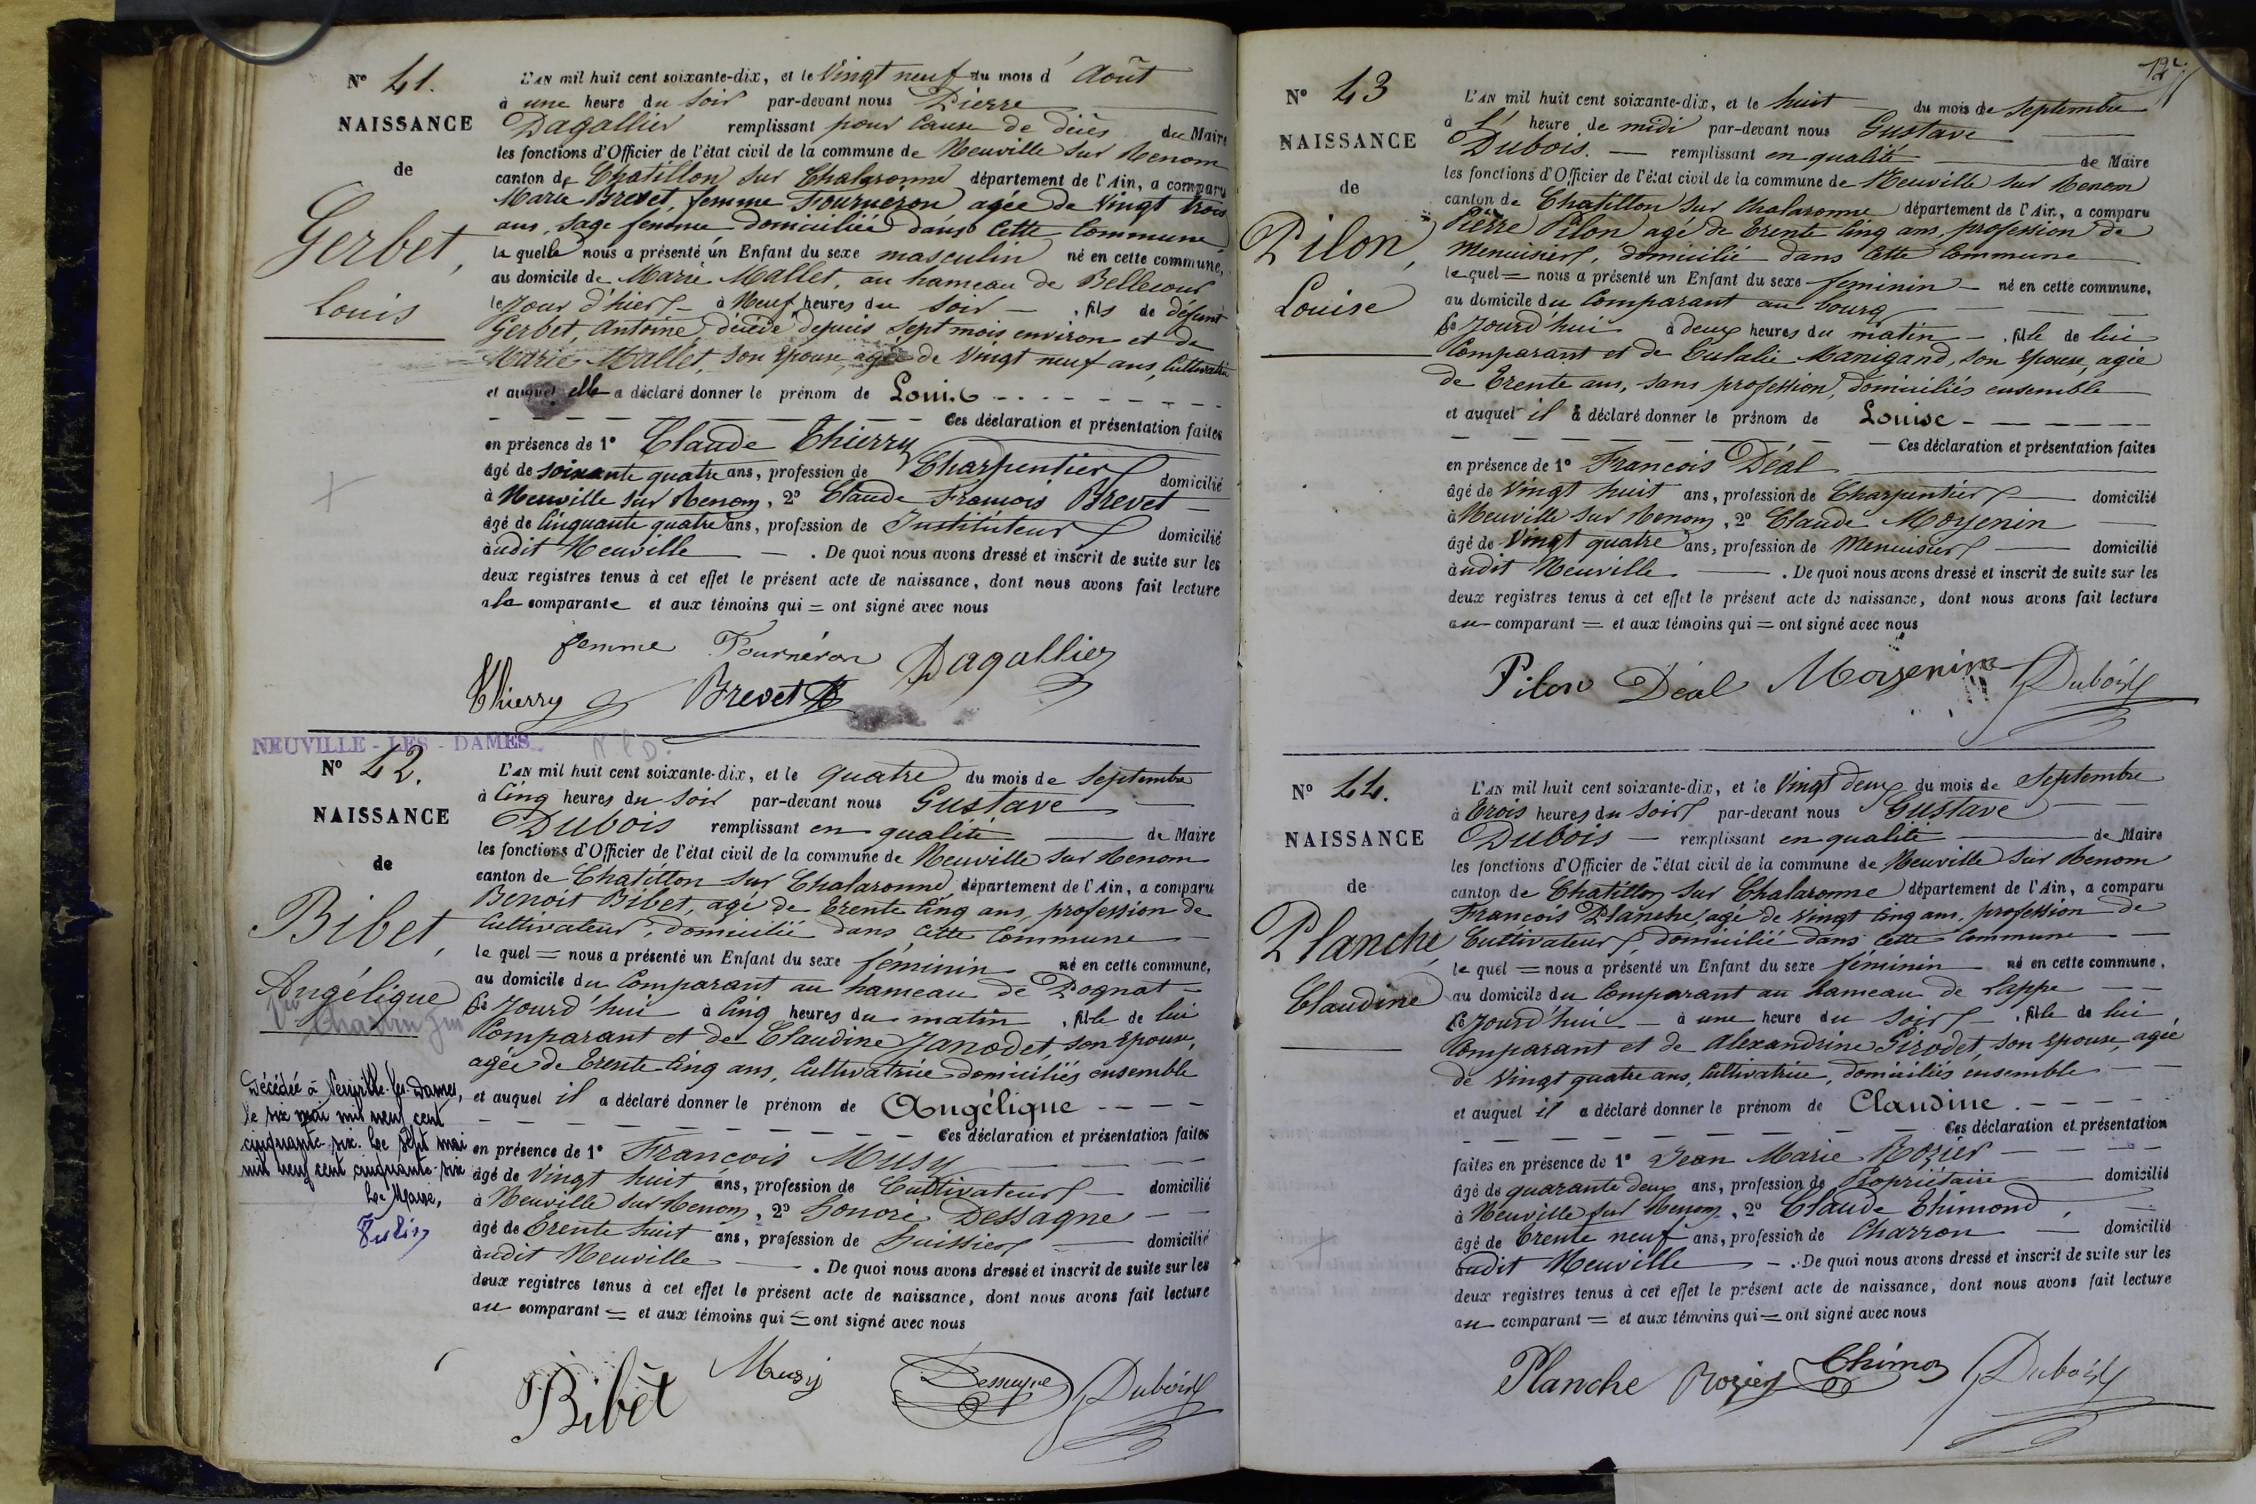 N° 41.
NAISSANCE
de
Gerbet,
Louis
L'AN mil huit cent soixante-dix, et le Vingt neuf du mois d'Août
à une heure du soir par-devant nous Pierre
Dagallier remplissant pour cause de décès du Maire
les fonctions d'Officier de l'état civil de la commune de Neuville sur Renom
canton de Chatillon sur Chalaronne département de l'Ain, a comparu
Marie Brevet, femme Fourneron agée de Vingt trois
ans, sage femme domiciliée dans cette Commune
la quelle nous a présenté un Enfant du sexe masculin né en cette commune,
au domicile de Marie Mallet, au hameau de Bellecour
le jour d'hier à Neuf heures du soir, fils de défunt
Gerbet, Antoine, décédé depuis sept mois environ et de
Marie Mallet, son épouse, agée de vingt neuf ans, Cultivatrice
et auquel elle a déclaré donner le prénom de Louis
Ces déclaration et présentation faites
en présence de 1° Claude Thierry
âgé de soixante quatre ans, profession de Charpentier domicilié
à Neuville sur Renom, 2° Claude François Brevet
âgé de Cinquante quatre ans, profession de Instituteur domicilié
audit Neuville. De quoi nous avons dressé et inscrit de suite sur les
deux registres tenus à cet effet le présent acte de naissance, dont nous avons fait lecture
a la comparante et aux témoins qui = ont signé avec nous
femme Fournéron Dagallier
Thierry Brevet
NEUVILLE - LES - DAMES
N L D.
N° 42.
NAISSANCE
de
Bibet,
Angélique
Chanvin
Décédée à Neuville-les-Dames,
le six mai mil neuf cent
cinquante-six. Le sept mai
mil neuf cent cinquante-six
Le Maire,
L'AN mil huit cent soixante-dix, et le quatre du mois de Septembre
à Cinq heures du soir par-devant nous Gustave
Dubois remplissant en qualité de Maire
les fonctions d'Officier de l'état civil de la commune de Neuville sur Renom
canton de Chatillon sur Chalaronne département de l'Ain, a comparu
Benoit Bibet, agé de trente cinq ans, profession de
Cultivateur, domicilié dans cette Commune
le quel = nous a présenté un Enfant du sexe féminin né en cette commune,
au domicile du Comparant au hameau de Pognat
Ce jourd'hui à Cinq heures du matin, fille de lui
Comparant et de Claudine Janodet, son épouse,
agée de trente cinq ans, Cultivatrice domiciliés ensemble
et auquel il a déclaré donner le prénom de Angélique
Ces déclaration et présentation faites
en présence de 1° François Musy
âgé de Vingt huit ans, profession de Cultivateur domicilié
à Neuville sur Renom, 2° Honoré Dessagne
âgé de trente huit ans, profession de huissier domicilié
audit Neuville. De quoi nous avons dressé et inscrit de suite sur les
deux registres tenus à cet effet le présent acte de naissance, dont nous avons fait lecture
au comparant = et aux témoins qui = ont signé avec nous
Bibet Musy Dessagne Dubois
N° 43
NAISSANCE
de
Pilon,
Louise
L'AN mil huit cent soixante-dix, et le huit du mois de Septembre
à l'heure de midi par-devant nous Gustave
Dubois. remplissant en qualité de Maire
les fonctions d'Officier de l'état civil de la commune de Neuville sur Renom
canton de Chatillon sur Chalaronne département de l'Ain, a comparu
Pierre Pilon agé de trente cinq ans, profession de
Menuisier, domicilié dans cette Commune
le quel = nous a présenté un Enfant du sexe feminin né en cette commune,
au domicile du Comparant au bourg
Ce jourd'hui à deux heures du matin, fille de lui
Comparant et de Eulalie Manigand, son épouse, agée
de trente ans, sans profession, domiciliés ensemble
et auquel il a déclaré donner le prénom de Louise
Ces déclaration et présentation faites
en présence de 1° François Déal
âgé de Vingt huit ans, profession de Charpentier domicilié
à Neuville sur Renom, 2° Claude Moyenin
âgé de Vingt quatre ans, profession de Menuisier domicilié
audit Neuville. De quoi nous avons dressé et inscrit de suite sur les
deux registres tenus à cet effet le présent acte de naissance, dont nous avons fait lecture
au comparant = et aux témoins qui = ont signé avec nous
Pilon Déal Moyenin Dubois
N° 44.
NAISSANCE
de
Planche,
Claudine
L'AN mil huit cent soixante-dix, et le Vingt deux du mois de Septembre
à trois heures du soir par-devant nous Gustave
Dubois remplissant en qualité de Maire
les fonctions d'Officier de l'état civil de la commune de Neuville sur Renom
canton de Chatillon sur Chalaronne département de l'Ain, a comparu
François Planche, agé de vingt cinq ans, profession de
Cultivateur domicilié dans cette Commune
le quel = nous a présenté un Enfant du sexe féminin né en cette commune,
au domicile du Comparant au hameau de Lappe
Ce jourd'hui à une heure du soir, fille de lui
Comparant et de Alexandrine Girodet, son épouse, agée
de vingt quatre ans, Cultivatrice, domiciliés ensemble
et auquel il a déclaré donner le prénom de Claudine.
Ces déclaration et présentation
faites en présence de 1° Jean Marie Rozier
âgé de quarante deux ans, profession de Propriétaire domicilié
à Neuville sur Renom, 2° Claude Thimond,
âgé de trente neuf ans, profession de Charron domicilié
audit Neuville. De quoi nous avons dressé et inscrit de suite sur les
deux registres tenus à cet effet le présent acte de naissance, dont nous avons fait lecture
au comparant = et aux témoins qui = ont signé avec nous
Planche Rozier Thimon Dubois